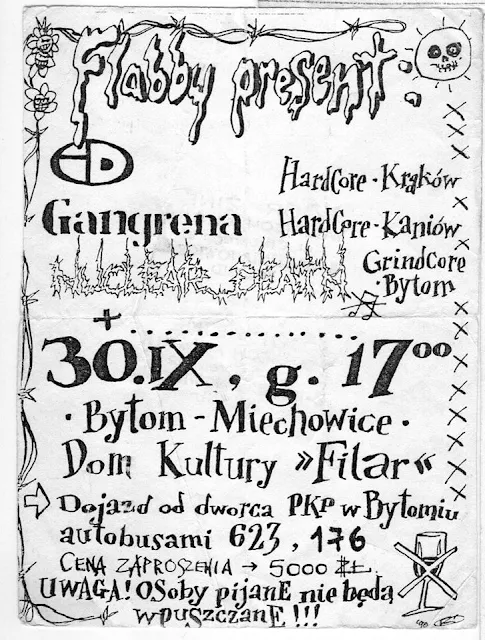 Flabby present:
iD HardCore - Kraków
Gangrena HardCore - Kaniów
NUCLEAR DEATH GrindCore
- Bytom
+ ..................
30.IX, g. 17⁰⁰
· Bytom - Miechowice ·
Dom Kultury »Filar«
Dojazd od dworca PKP w Bytomiu
autobusami 623, 176
CENA ZAPROSZENIA → 5000 ZŁ.
UWAGA! OSoby pijanE nie będą
wpuszczanE !!!